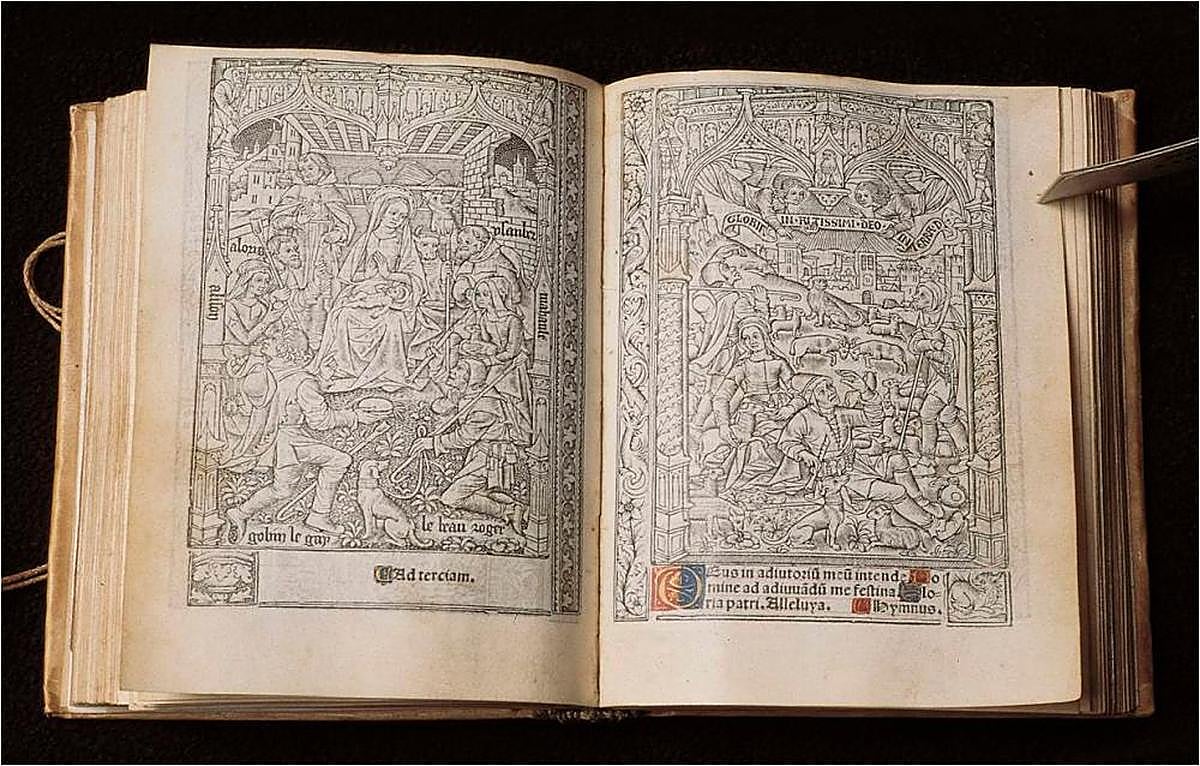 aloris
alison
mahault
gobin le gay
le beau roger
Ad terciam.
IN ALTISSIMI·DEO
DEus in adiutoriū meū intende Do
mine ad adiuuādū me festina Glo-
ria patri. Alleluya. Hymnus.